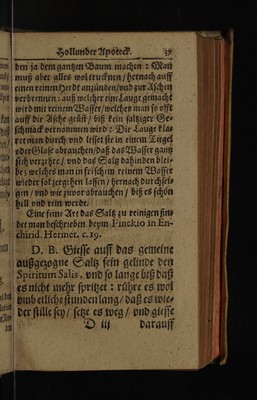 Hollunder Apoteck. 37
den ja dem gantzen Baum machen: Man
muß aber alles wol trucknen / hernach auff
einen reinen Herdt anzünden / und zur Aschen
verbrennen: auß welcher eine Lauge gemacht
wird mit reinem Wasser / welches man so offt
auff die Asche grüst / biß kein saltziger Ge-
schmack vernommen wird: Die Lauge kla-
ret man durch und lesset sie in einem Tiegel
oder Glase abrauchen / daß das Wasser gantz
sich verzehre / und das Saltz dahinden blei-
be; welches man in frischem reinem Wasser
wieder sol zergehen lassen / hernach durchsei-
gen / und wie zuvor abrauchen / biß es schön
hell und rein werde.
Eine feine Art das Saltz zu reinigen fin-
det man beschrieben beym Finckio in En-
chirid. Hermet. c. 19.
D. B. Giesse auff das gemeine
außgezogne Saltz fein gelinde den
Spiritum Salis, und so lange biß daß
es nicht mehr spritzet: rühre es wol
umb etliche stunden lang / daß es wie-
der stille sey / setze es weg / und giesse
D iij darauff